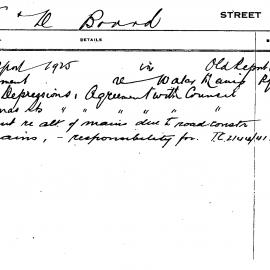 & D Board STREET
DETAILS
port 1925 in Old Report
ment re Water Mains
Depressions, Agreement with Council
nds Sts " " " " "
nt re alt. of mains due to road constr
ains, - responsibility for. T.C. 2144/41